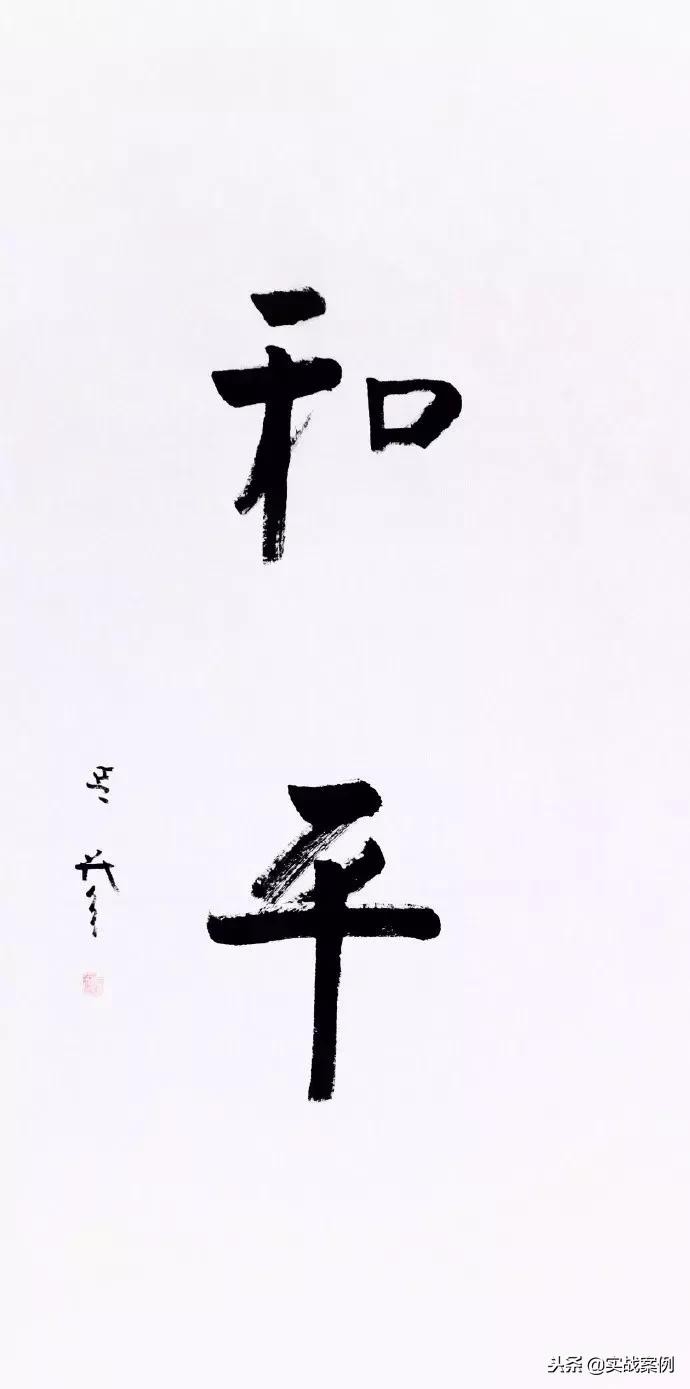 和平
头条 @实战案例